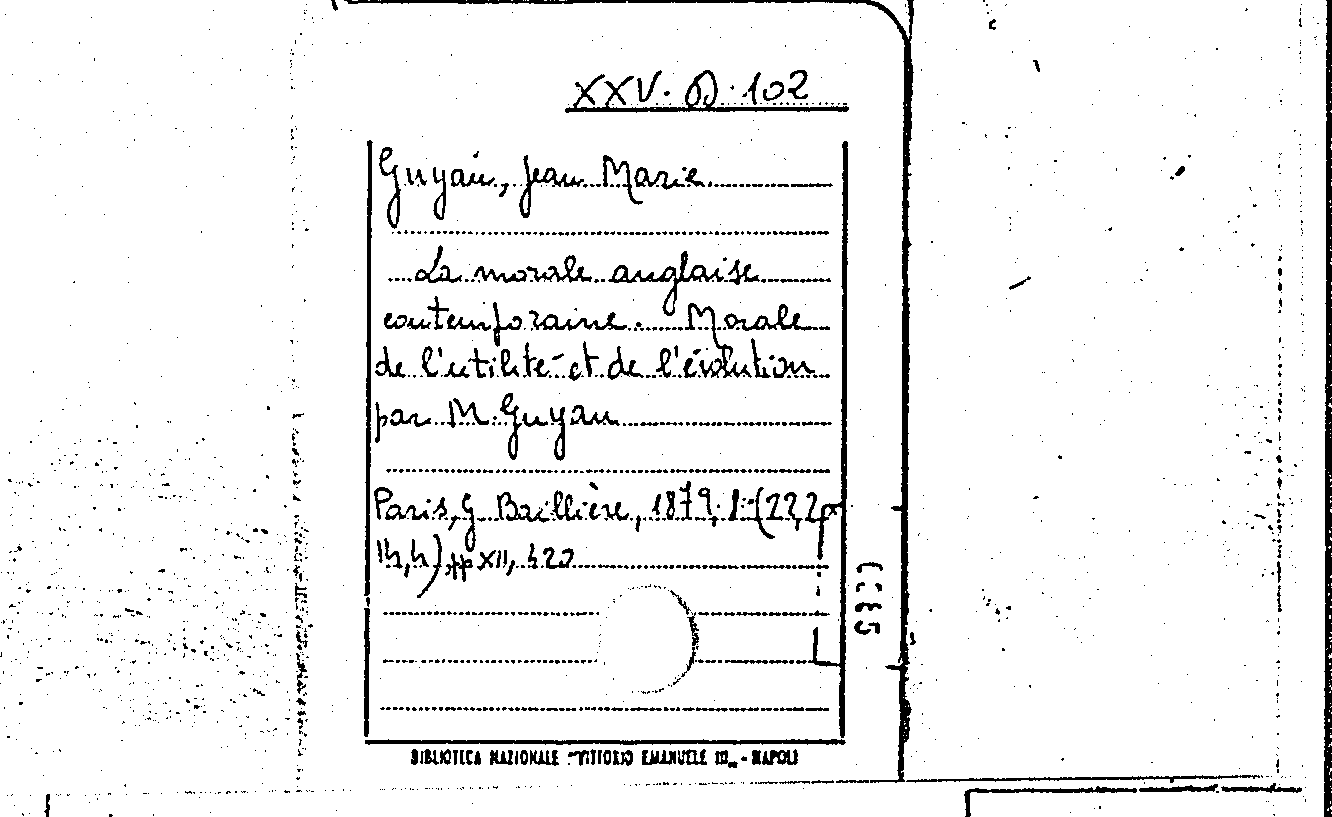 XXV. D. 102
Guyau, Jean Marie
La morale anglaise
contemporaine. Morale
de l'utilité et de l'évolution
par M. Guyau
Paris, G. Baillière, 1879, 8° (22,2x
14,4) pp XII, 420
BIBLIOTECA NAZIONALE "VITTORIO EMANUELE III" - NAPOLI